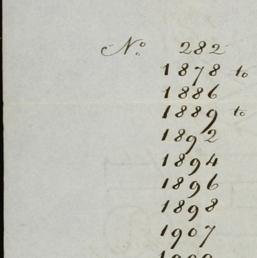 No. 282
1878 to
1886
1889 to
1892
1894
1896
1898
1907